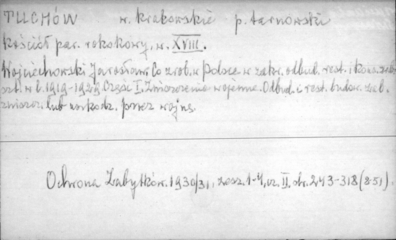 TUCHÓW w. krakowskie p. tarnowski
Kościół par. rokokowy, w. XVIII.
Wojciechowski Jarosław: Co zrob. w Polsce w zakr. odbud. rest. i kons. zab.
szt. w l. 1919-1929 Część I. Zniszczenia wojenne. Odbud. i rest. budow. zab.
zniszcz. lub uszkodz. przez wojnę.
Ochrona Zabytków. 1930/31, zesz. 1-4, cz. II, str. 243-318 (251).